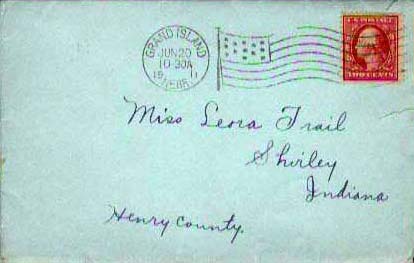 GRAND ISLAND
JUN 20
10 30A
19 11
NEBR.
TWO CENTS
Miss Leora Trail
Shirley
Indiana
Henry County.